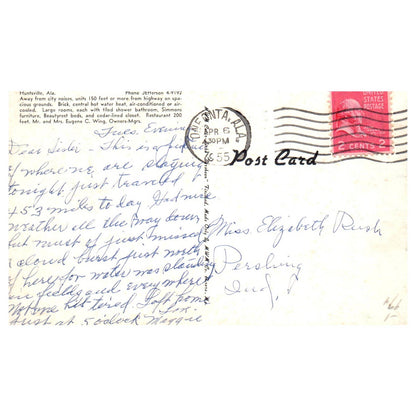 Huntsville, Ala. Phone Jefferson 4-9192
Away from city noises, units 150 feet or more from highway on spa-
cious grounds. Brick, central hot water heat, air-conditioned or air-
cooled. Large rooms, each with tiled shower bathroom, Simmons
furniture, Beautyrest beds, and cedar-lined closet. Restaurant 200
feet. Mr. and Mrs. Eugene C. Wing, Owners-Mgrs.
Tues. Evening
Dear Sister - This is a
of where we are staying
tonight just traveled
453 miles to day. Had nice
weather all the way down
but must of just missed
a cloud burst just north
of here, for water was standing
in fields and everywhere
Not one bit tired. Left home
just at 5 o'clock Maggie
ONEONTA, ALA.
APR 6
PM
1955
UNITED STATES
POSTAGE
2 CENTS 2
Post Card
Miss Elizabeth Rush
Pershing
Ind.